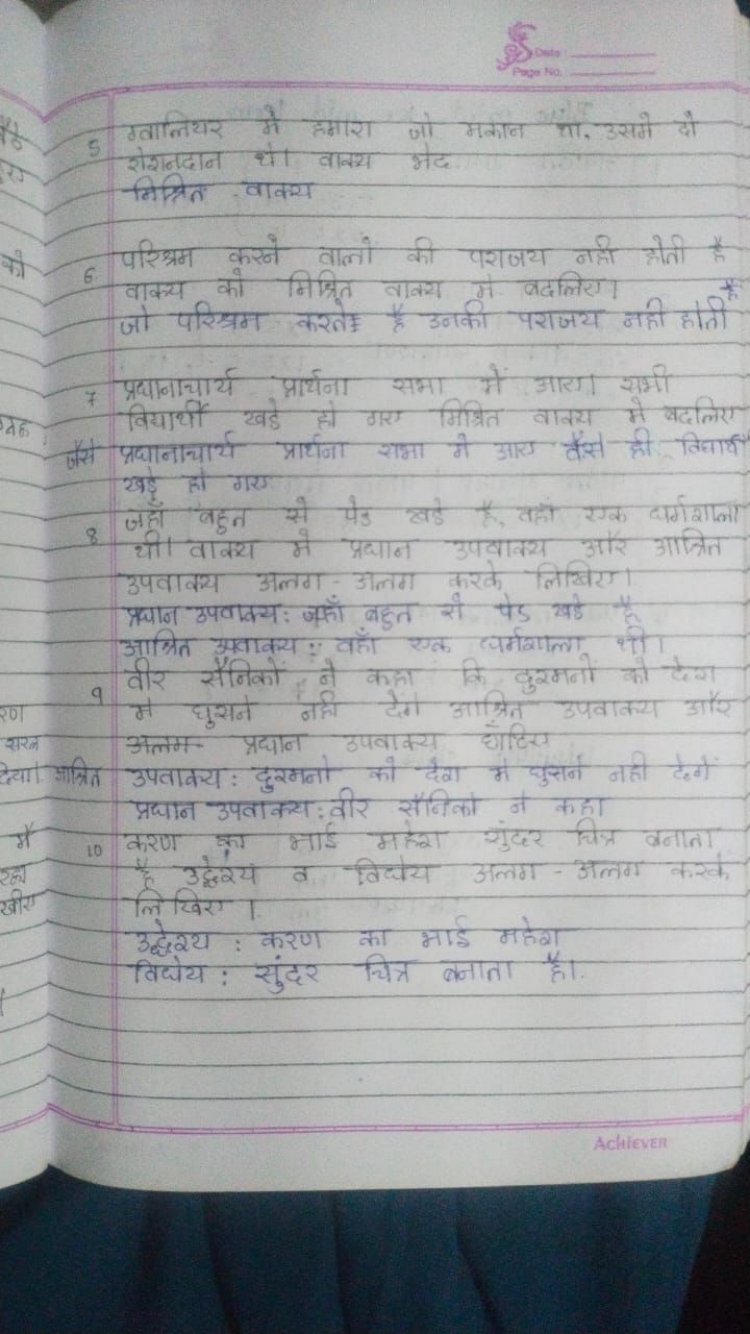 Date
Page No.
5 ग्वालियर मे हमारा जो मकान था. उसमे दो
रोशनदान थे। वाक्य भेद
मिश्रित वाक्य
6. परिश्रम करने वालो की पराजय नही होती है
वाक्य को मिश्रित वाक्य मे बदलिए।
जो परिश्रम करते है उनकी पराजय नही होती है
7 प्रधानाचार्य प्रार्थना सभा में आए। सभी
विद्यार्थी खडे हो गए मिश्रित वाक्य मे बदलिए
जैसे प्रधानाचार्य प्रार्थना सभा मे आए वैसे ही विद्यार्थी
खड़े हो गए
8 जहाँ बहुत से पेड खडे है, वहाँ एक धर्मशाला
थी। वाक्य मे प्रधान उपवाक्य और आश्रित
उपवाक्य अलग - अलग करके लिखिए।
प्रधान उपवाक्य: जहाँ बहुत से पेड खडे है
आश्रित उपवाक्य: वहाँ एक धर्मशाला थी।
9 वीर सैनिकों ने कहा कि दुश्मनों को देश
मे घुसने नही देगे आश्रित उपवाक्य और
अलग- प्रधान उपवाक्य छाँटिए
आश्रित उपवाक्य: दुश्मनो को देश मे घुसने नही देगें
प्रधान उपवाक्य: वीर सैनिको ने कहा
10 करण का भाई महेश सुंदर चित्र बनाता
है उद्देश्य व विधेय अलग - अलग करके
लिखिए।
उद्देश्य : करण का भाई महेश
विधेय : सुंदर चित्र बनाता है।
ACHIEVER